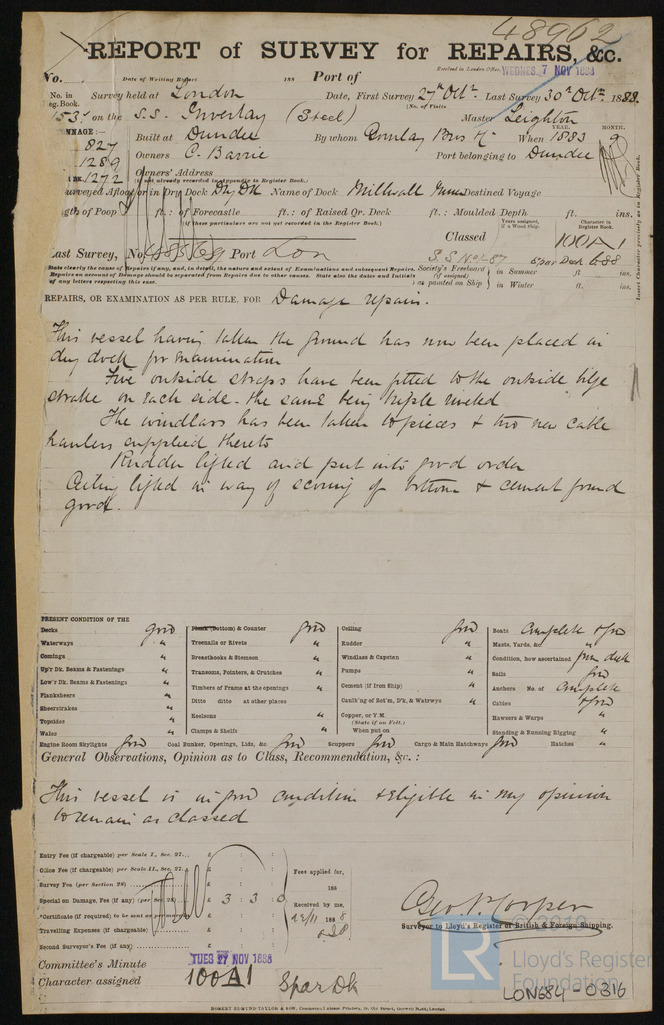 48962
REPORT of SURVEY for REPAIRS, &c.
No. Date of Writing Report 188 Port of Received in London Office WEDNES. 7 NOV 1888
No. in Survey held at London Date, First Survey 27th Octr. Last Survey 30th Octr. 1888.
Reg. Book. (No. of Visits
153 on the S.S. Inverlay (Steel) Master Leighton
TONNAGE:— Built at Dundee By whom Gourlay Bros & Co When 1883 YEAR. MONTH. 9
827
1289 Owners C. Barrie Port belonging to Dundee
1272 Owners' Address
(If not already recorded in Appendix to Register Book.)
Surveyed Afloat or in Dry Dock Dry Dk Name of Dock Millwall Destined Voyage
Length of Poop ft.: of Forecastle ft.: of Raised Qr. Deck ft.: Moulded Depth ft. ins.
(if these particulars are not yet recorded in the Register Book.)
Years assigned, if a Wood Ship. Character in Register Book.
Classed 100A1
Last Survey, No. 48569 Port Lon S.S. No.1-87 Spar Deck 6.88
State clearly the cause of Repairs if any, and, in detail, the nature and extent of Examinations and subsequent Repairs.
Repairs on account of Damage should be separated from Repairs due to other causes. State also the dates and Initials
of any letters respecting this case.
Society's Freeboard (if assigned) as painted on Ship in Summer ft ins.
in Winter ft. ins.
Insert Character precisely as in Register Book.
REPAIRS, OR EXAMINATION AS PER RULE, FOR Damage repairs.
This vessel having taken the ground has now been placed in
dry dock for examination
Five outside straps have been fitted to the outside bilge
strake on each side - the same being treble riveted
The windlass has been taken to pieces & two new cable
haulers supplied thereto
Rudder lifted and put into good order
Ceiling lifted in way of scoring of bottom & cement found
good.
PRESENT CONDITION OF THE
Decks good
Waterways "
Comings "
Up'r Dk. Beams & Fastenings "
Low'r Dk. Beams & Fastenings "
Planksheers "
Sheerstrakes "
Topsides "
Wales "
Plank (Bottom) & Counter good
Treenails or Rivets "
Breasthooks & Stemson "
Transoms, Pointers, & Crutches "
Timbers of Frame at the openings "
Ditto ditto at other places "
Keelsons "
Clamps & Shelfs "
Ceiling good
Rudder "
Windlass & Capstan "
Pumps "
Cement (if Iron Ship) "
Caulk'g of Bot'm, D'k, & Watrwys "
Copper, or Y.M. (State if on Felt.)
When put on
Boats Complete & good
Masts, Yards, &c. "
Condition, how ascertained from deck
Sails good
Anchors No. of Complete
Cables & good
Hawsers & Warps "
Standing & Running Rigging "
Engine Room Skylights good Coal Bunker, Openings, Lids, &c. good Scuppers good Cargo & Main Hatchways good Hatches "
General Observations, Opinion as to Class, Recommendation, &c.:
This vessel is in good condition & eligible in my opinion
to remain as classed
Entry Fee (if chargeable) per Scale I., Sec. 27... £ : :
Office Fee (if chargeable) per Scale II., Sec. 27... £ : :
Survey Fee (per Section 28) £ : :
Special or Damage, Fee (if any) (per Sec. 28) £ 3 3 0
*Certificate (if required) to be sent as per margin £ : :
Travelling Expenses (if chargeable) £ : :
Second Surveyor's Fee (if any) £ : :
Fees applied for, 188
Received by me,
22/11 1888
Geo. P. Cooper
Surveyor to Lloyd's Register of British & Foreign Shipping.
Committee's Minute TUES 27 NOV 1888
Character assigned 100A1 Spar Dk
© 2019
LR
Lloyd's Register
Foundation
LON684-0316
ROBERT EDMUND TAYLOR & SON, Commercial Advice Printers, 19, Old Street, Goswell Road, London.